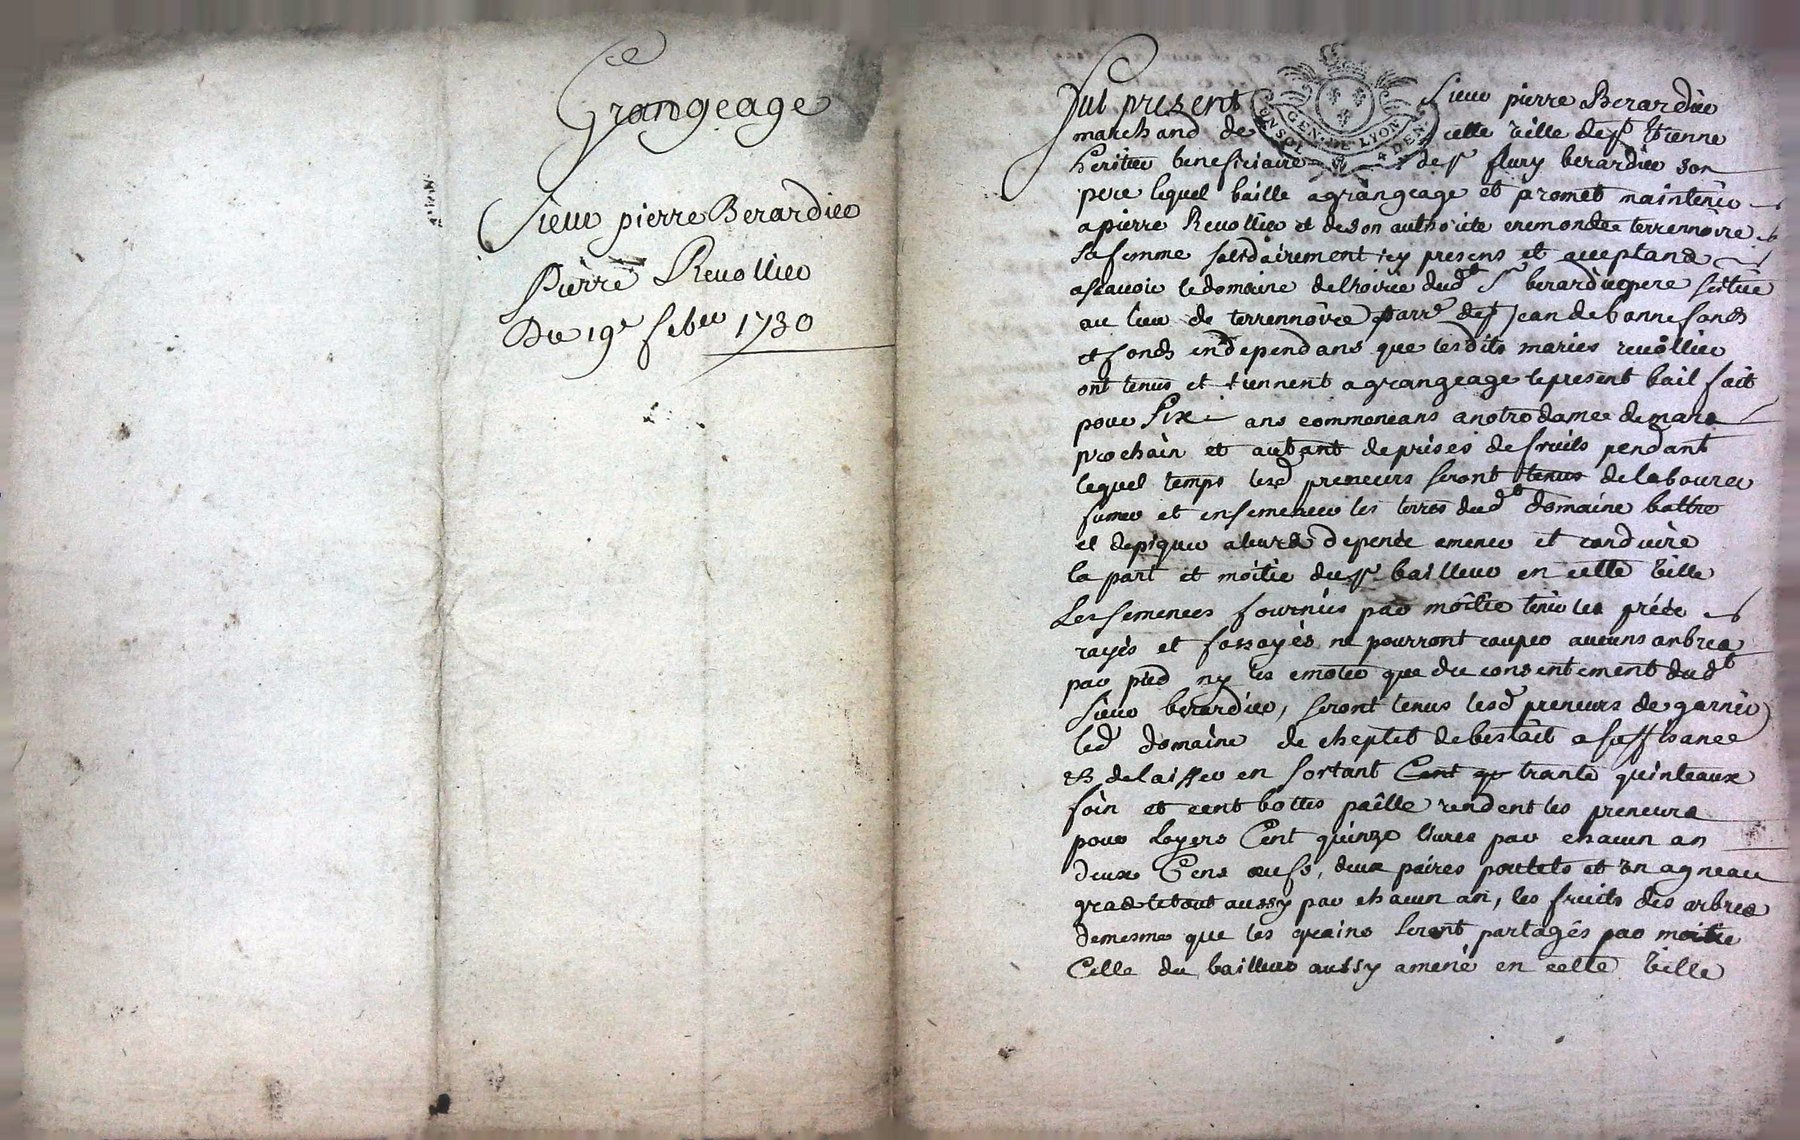 Grangeage
Sieur pierre Berardier
Pierre Revollier
Du 19e feber 1730
Fut present Sieur pierre Berardier
GEN DE LYON
marchand de cette ville de st Etienne
heritier beneficiaire de sr flury berardier son
pere lequel baille a grangeage et promet maintenir
a pierre Revollier et de son authorité eremondee terrennoire
sa femme solidairement icy presens et acceptans
ascavoir le domaine de lhoirie dudt sr berardier pere scitue
au lieu de terrennoire parre de st Jean de bonnefonds
et fonds en dependans que lesdits maries revollier
ont tenus et tiennent a grangeage le present bail fait
pour Six ans commencans a notre dame de mars
prochain et autant de prises de fruits pendant
lequel temps lesd preneurs seront tenus de labourer
fumer et ensemencer les terres dudt domaine battre
et depiquer a leurs depence amener et conduire
la part et moitie du sr bailleur en cette ville
Les semences fournies par moitie tenir les prees
rayés et fossoyés ne pourront couper aucuns arbres
par pied ny les emoter que du consentement dudt
sieur berardier, seront tenus lesd preneurs de garnir
led domaine de cheptel de bestait a suffisance
et delaisser en sortant Cent qr trante quinteaux
foin et cent bottes paille rendent les preneurs
pour Loyers Cent quinze livres par chacun an
deux Cens oeufs, deux paires poulets et un agneau
gras le tout aussy par chacun an, les fruits des arbres
de mesme que les grains seront partagés par moitie
Celle du bailleur aussy amené en cette ville